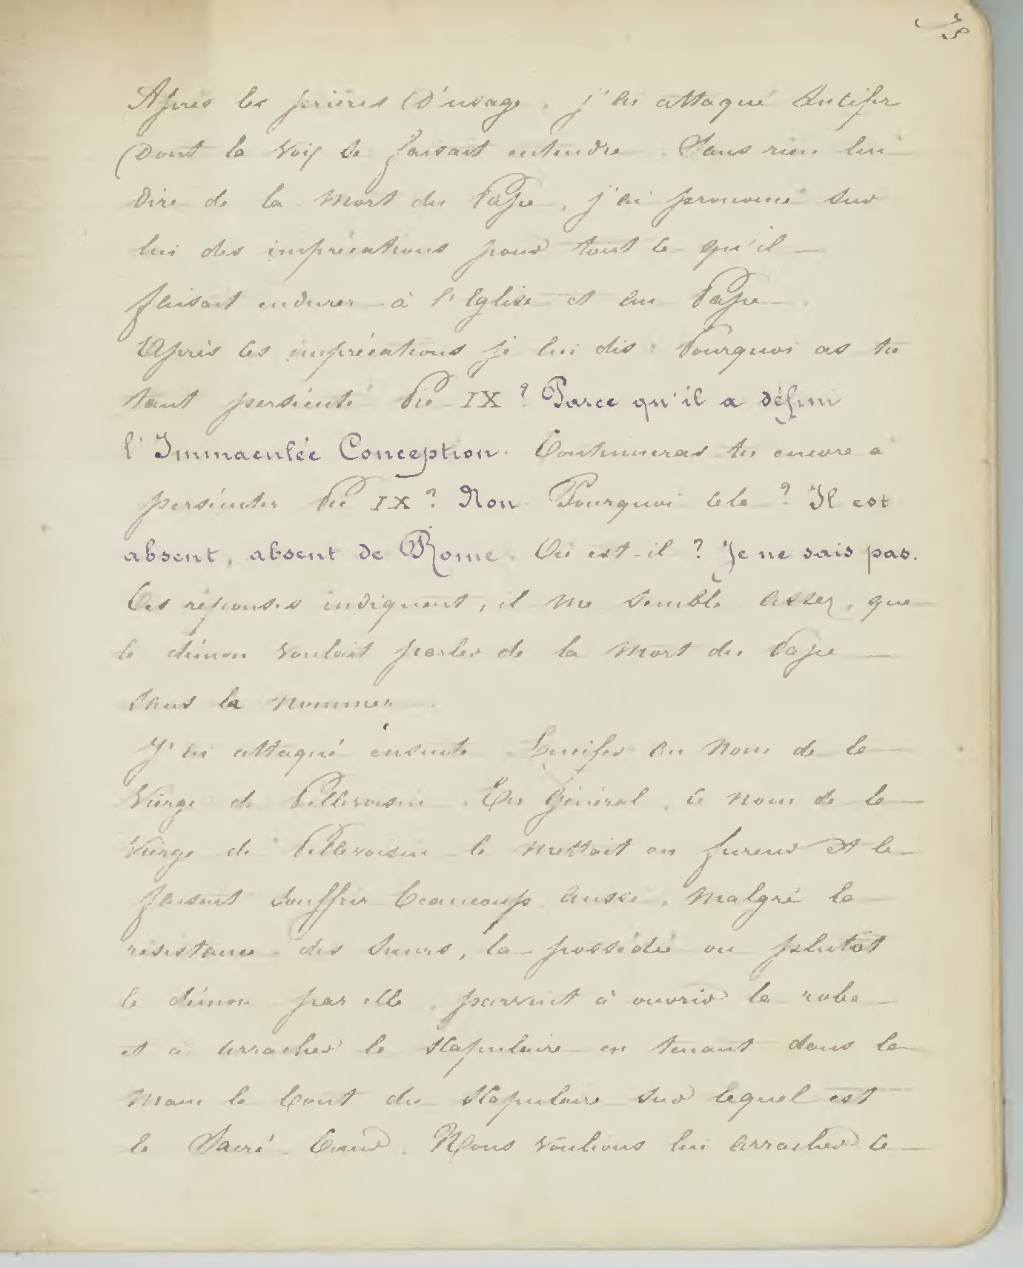 Après les prières d'usage, j'ai attaqué Lucifer
dont la voix se faisait entendre. Sans rien lui
dire de la mort du Pape, j'ai prononcé sur
lui des imprécations pour tout ce qu'il
faisait endurer à l'Eglise et au Pape.
Après les imprécations je lui dis : Pourquoi as tu
tant persécuté Pie IX ? Parce qu'il a défini
l'Immaculée Conception. Continueras tu encore à
persécuter Pie IX ? Non Pourquoi cela ? Il est
absent, absent de Rome. Où est-il ? Je ne sais pas.
Ces réponses indiquent, il me semble assez, que
le démon voulait parler de la mort du Pape
sans la nommer.
J'ai attaqué ensuite Lucifer au nom de la
Vierge de Pellevoisin. En général, le nom de la
Vierge de Pellevoisin le mettait en fureur et le
faisait souffrir beaucoup aussi, malgré la
résistance des sœurs, la possédée ou plutôt
le démon par elle, parvint à ouvrir la robe
et à arracher le scapulaire en tenant dans la
main le bout du scapulaire sur lequel est
le Sacré Cœur. Nous voulions lui arracher ce